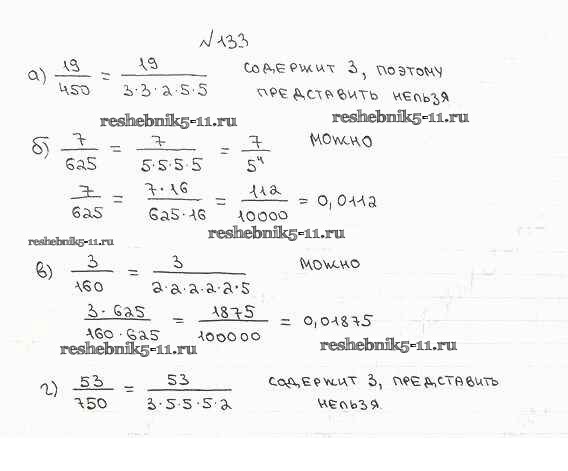 №133
а) 19/450 = 19/(3·3·2·5·5) содержит 3, поэтому
представить нельзя
reshebnik5-11.ru reshebnik5-11.ru
б) 7/625 = 7/(5·5·5·5) = 7/5⁴ можно
7/625 = (7·16)/(625·16) = 112/10000 = 0,0112
reshebnik5-11.ru
reshebnik5-11.ru
в) 3/160 = 3/(2·2·2·2·2·5) можно
(3·625)/(160·625) = 1875/100000 = 0,01875
reshebnik5-11.ru reshebnik5-11.ru
г) 53/750 = 53/(3·5·5·5·2) содержит 3, представить
нельзя.